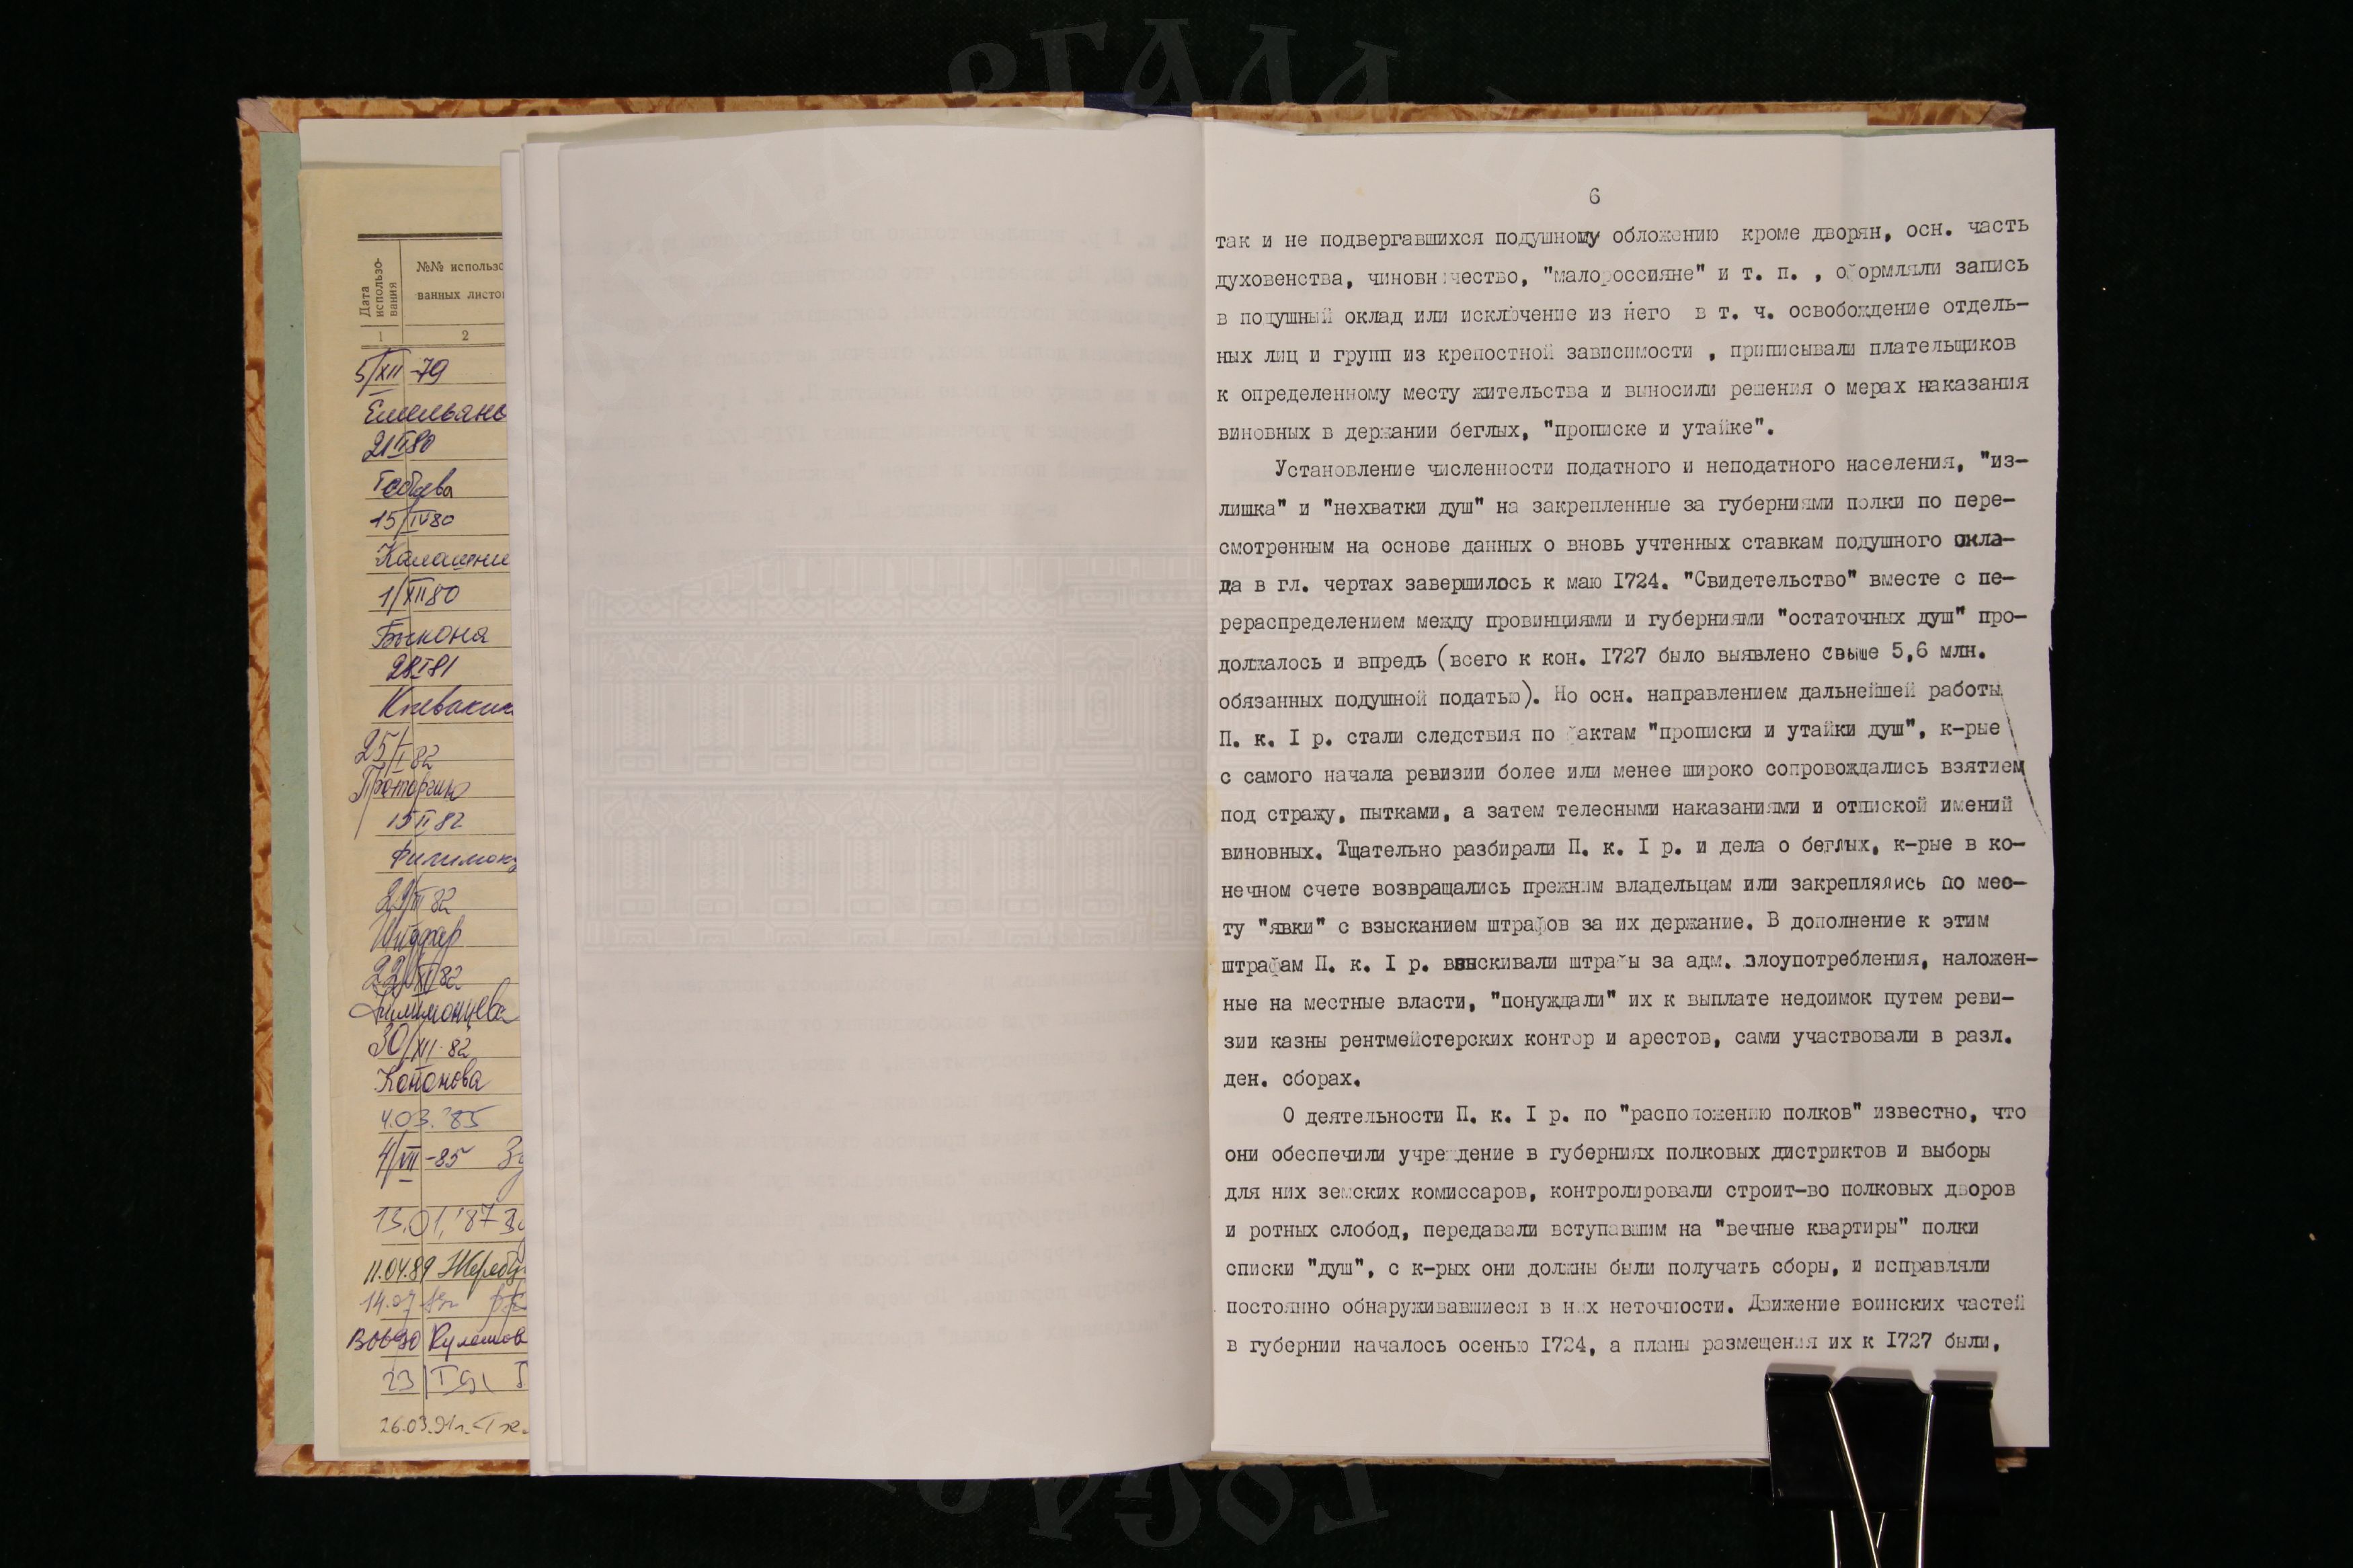 Дата использо-
вания
№№ использо
ванных листо
1
2
5/XII-79
21 II 80
15/IV 80
1/XII 80
Быконя
28 I 81
25/I 82
15 II 82
22/XI 82
30/XII-82
Кононова
4.03.'85
4/VII-85
13.01.'87
11.04.89
26.03.91г.
6
так и не подвергавшихся подушному обложению кроме дворян, осн. часть
духовенства, чиновничество, "малороссияне" и т. п. , оформляли запись
в подушный оклад или исключение из него в т. ч. освобождение отдель-
ных лиц и групп из крепостной зависимости , приписывали плательщиков
к определенному месту жительства и выносили решения о мерах наказания
виновных в держании беглых, "прописке и утайке".
Установление численности податного и неподатного населения, "из-
лишка" и "нехватки душ" на закрепленные за губерниями полки по пере-
смотренным на основе данных о вновь учтенных ставкам подушного окла-
да в гл. чертах завершилось к маю I724. "Свидетельство" вместе с пе-
рераспределением между провинциями и губерниями "остаточных душ" про-
должалось и впредь (всего к кон. I727 было выявлено свыше 5,6 млн.
обязанных подушной податью). Но осн. направлением дальнейшей работы
П. к. I р. стали следствия по фактам "прописки и утайки душ", к-рые
с самого начала ревизии более или менее широко сопровождались взятием
под стражу, пытками, а затем телесными наказаниями и отпиской имений
виновных. Тщательно разбирали П. к. I р. и дела о беглых, к-рые в ко-
нечном счете возвращались прежним владельцам или закреплялись по мес-
ту "явки" с взысканием штрафов за их держание. В дополнение к этим
штрафам П. к. I р. взыскивали штрафы за адм. злоупотребления, наложен-
ные на местные власти, "понуждали" их к выплате недоимок путем реви-
зии казны рентмейстерских контор и арестов, сами участвовали в разл.
ден. сборах.
О деятельности П. к. I р. по "расположению полков" известно, что
они обеспечили учреждение в губерниях полковых дистриктов и выборы
для них земских комиссаров, контролировали строит-во полковых дворов
и ротных слобод, передавали вступавшим на "вечные квартиры" полки
списки "душ", с к-рых они должны были получать сборы, и исправляли
постоянно обнаруживавшиеся в них неточности. Движение воинских частей
в губернии началось осенью I724, а планы размещения их к I727 были,